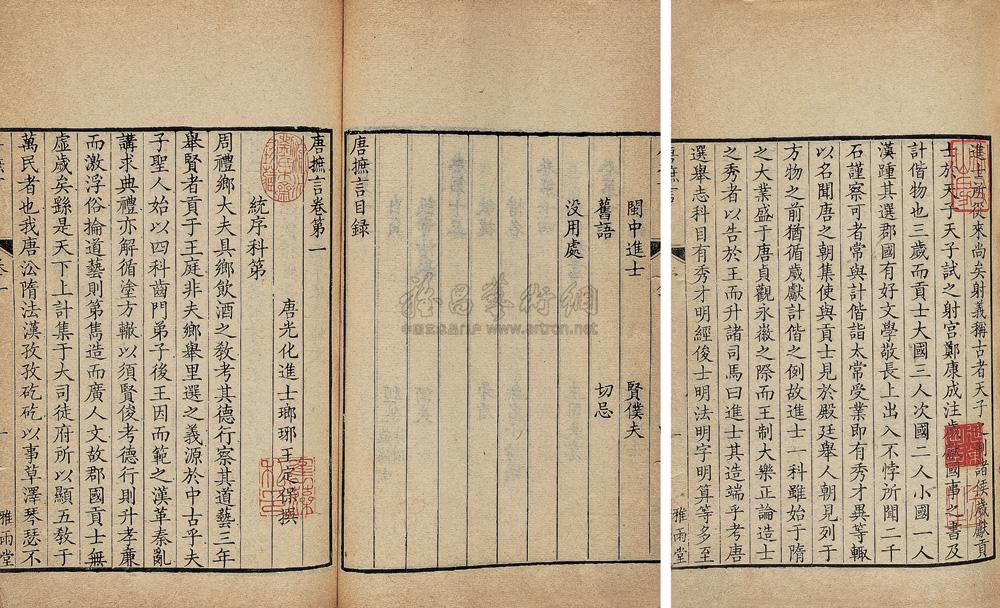 進士所從來尚矣射義稱古者天子之制諸侯歲獻貢
士於天子天子試之射宮鄭康成注歲獻國事之書及
計偕物也三歲而貢士大國三人次國二人小國一人
漢踵其選郡國有好文學敬長上出入不悖所聞二千
石謹察可者常與計偕詣太常受業即有秀才異等輒
以名聞唐之朝集使與貢士見於殿廷舉人朝見列于
方物之前猶循歲獻計偕之例故進士一科雖始于隋
之大業盛于唐貞觀永徽之際而王制大樂正論造士
之秀者以告於王而升諸司馬曰進士其造端乎考唐
選舉志科目有秀才明經俊士明法明字明算等多至
唐摭言 一 雅雨堂
閩中進士 賢僕夫
舊語 切忌
没用處
唐摭言目録
唐摭言卷第一
唐光化進士瑯琊王定保撰
統序科第
周禮鄉大夫具鄉飲酒之教考其德行察其道藝三年
舉賢者貢于王庭非夫鄉舉里選之義源於中古乎夫
子聖人始以四科齒門弟子後王因而範之漢革秦亂
講求典禮亦解循塗方轍以須賢俊考德行則升孝廉
而激浮俗掄道藝則第雋造而廣人文故郡國貢士無
虛歲矣繇是天下上計集于大司徒府所以顯五教于
萬民者也我唐沿隋法漢孜孜矻矻以事草澤琴瑟不
一 雅雨堂
www.artron.net